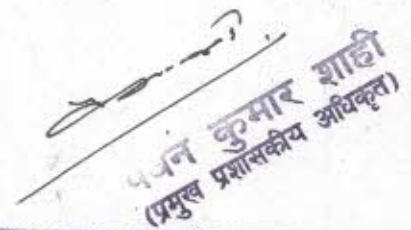 कुमार शाही
(प्रमुख प्रशासकीय अधिकृत)